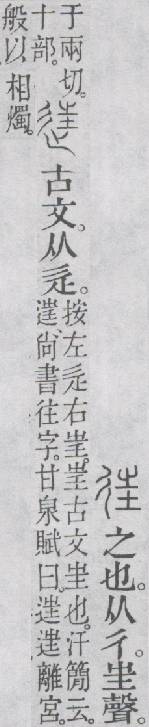 徃之也。从彳㞷聲。
于兩切。
十部。
𨓹古文从辵。
按左辵右㞷。㞷古文㞷也。汗簡云。
𨓹尚書往字。甘泉賦曰。𨓹𨓹離宮。
般以相燭。